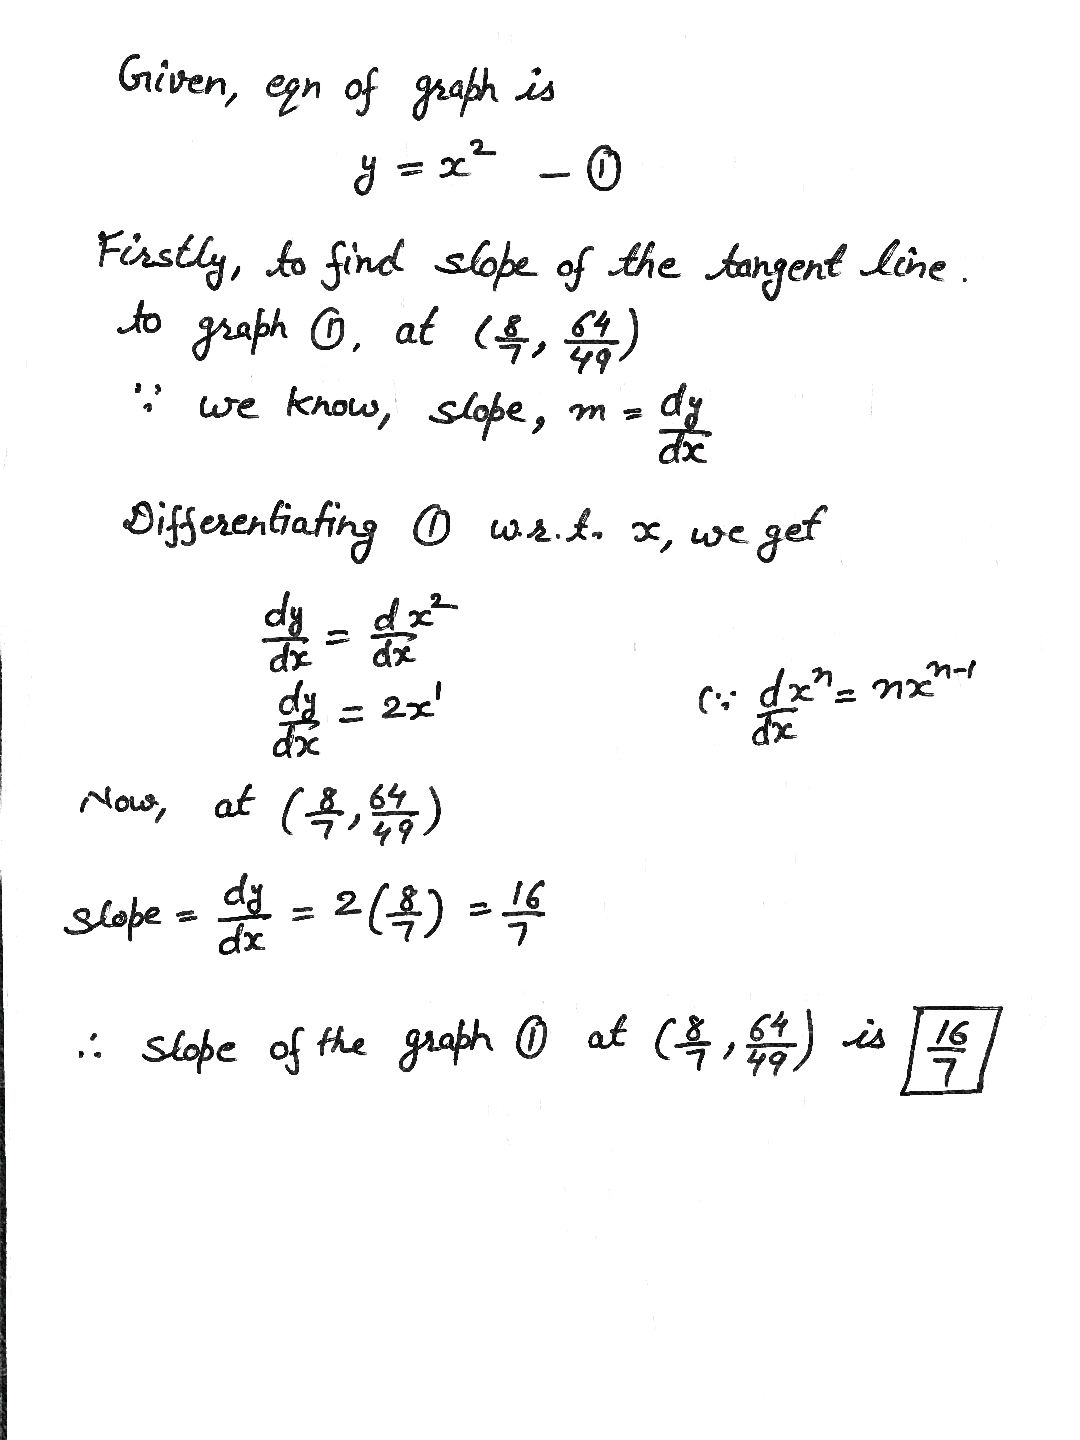 Given, eqn of graph is
y = x² – ①
Firstly, to find slope of the tangent line.
to graph ①, at (8/7, 64/49)
∵ we know, slope, m = dy/dx
Differentiating ① w.r.t. x, we get
dy/dx = dx²/dx
dy/dx = 2x¹ (∵ dxⁿ/dx = nxⁿ⁻¹
Now, at (8/7, 64/49)
Slope = dy/dx = 2(8/7) = 16/7
∴ slope of the graph ① at (8/7, 64/49) is 16/7